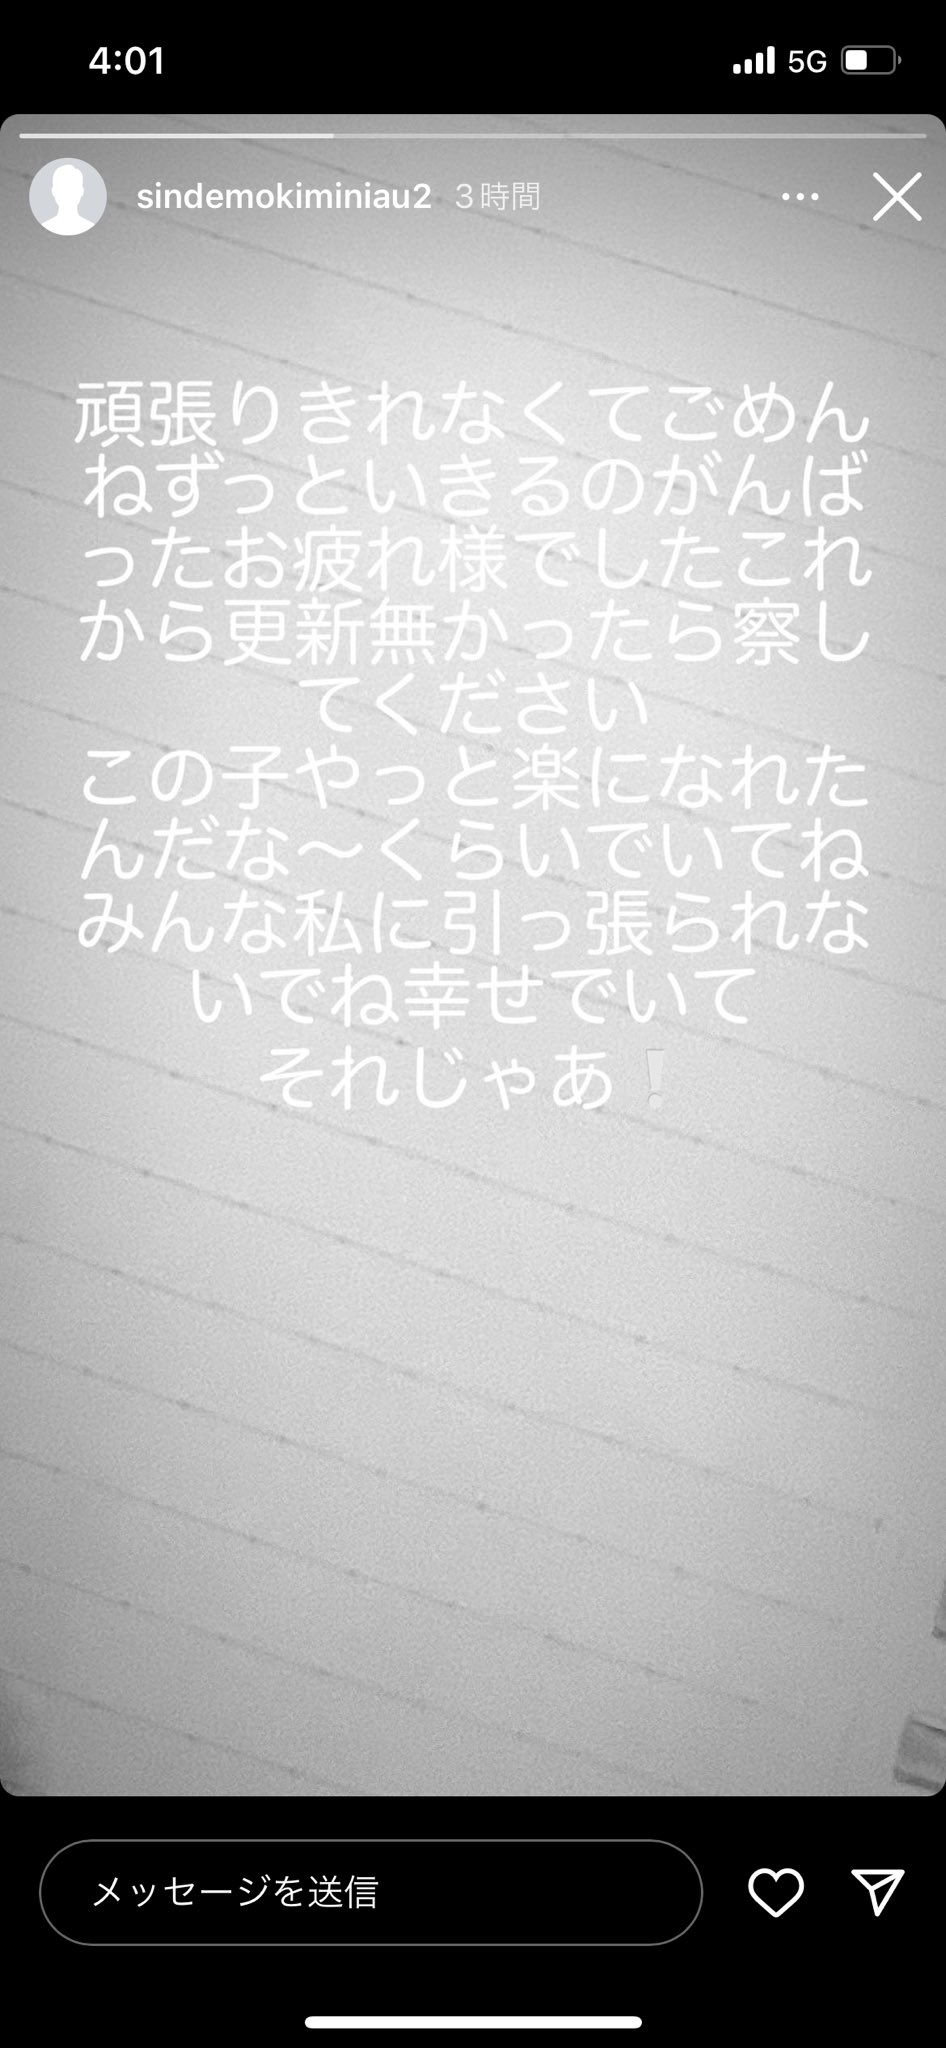 4:01
5G
sindemokiminiau2 3時間
頑張りきれなくてごめん
ねずっといきるのがんば
ったお疲れ様でしたこれ
から更新無かったら察し
てください
この子やっと楽になれた
んだな〜くらいでいてね
みんな私に引っ張られな
いでね幸せでいて
それじゃあ❕
メッセージを送信